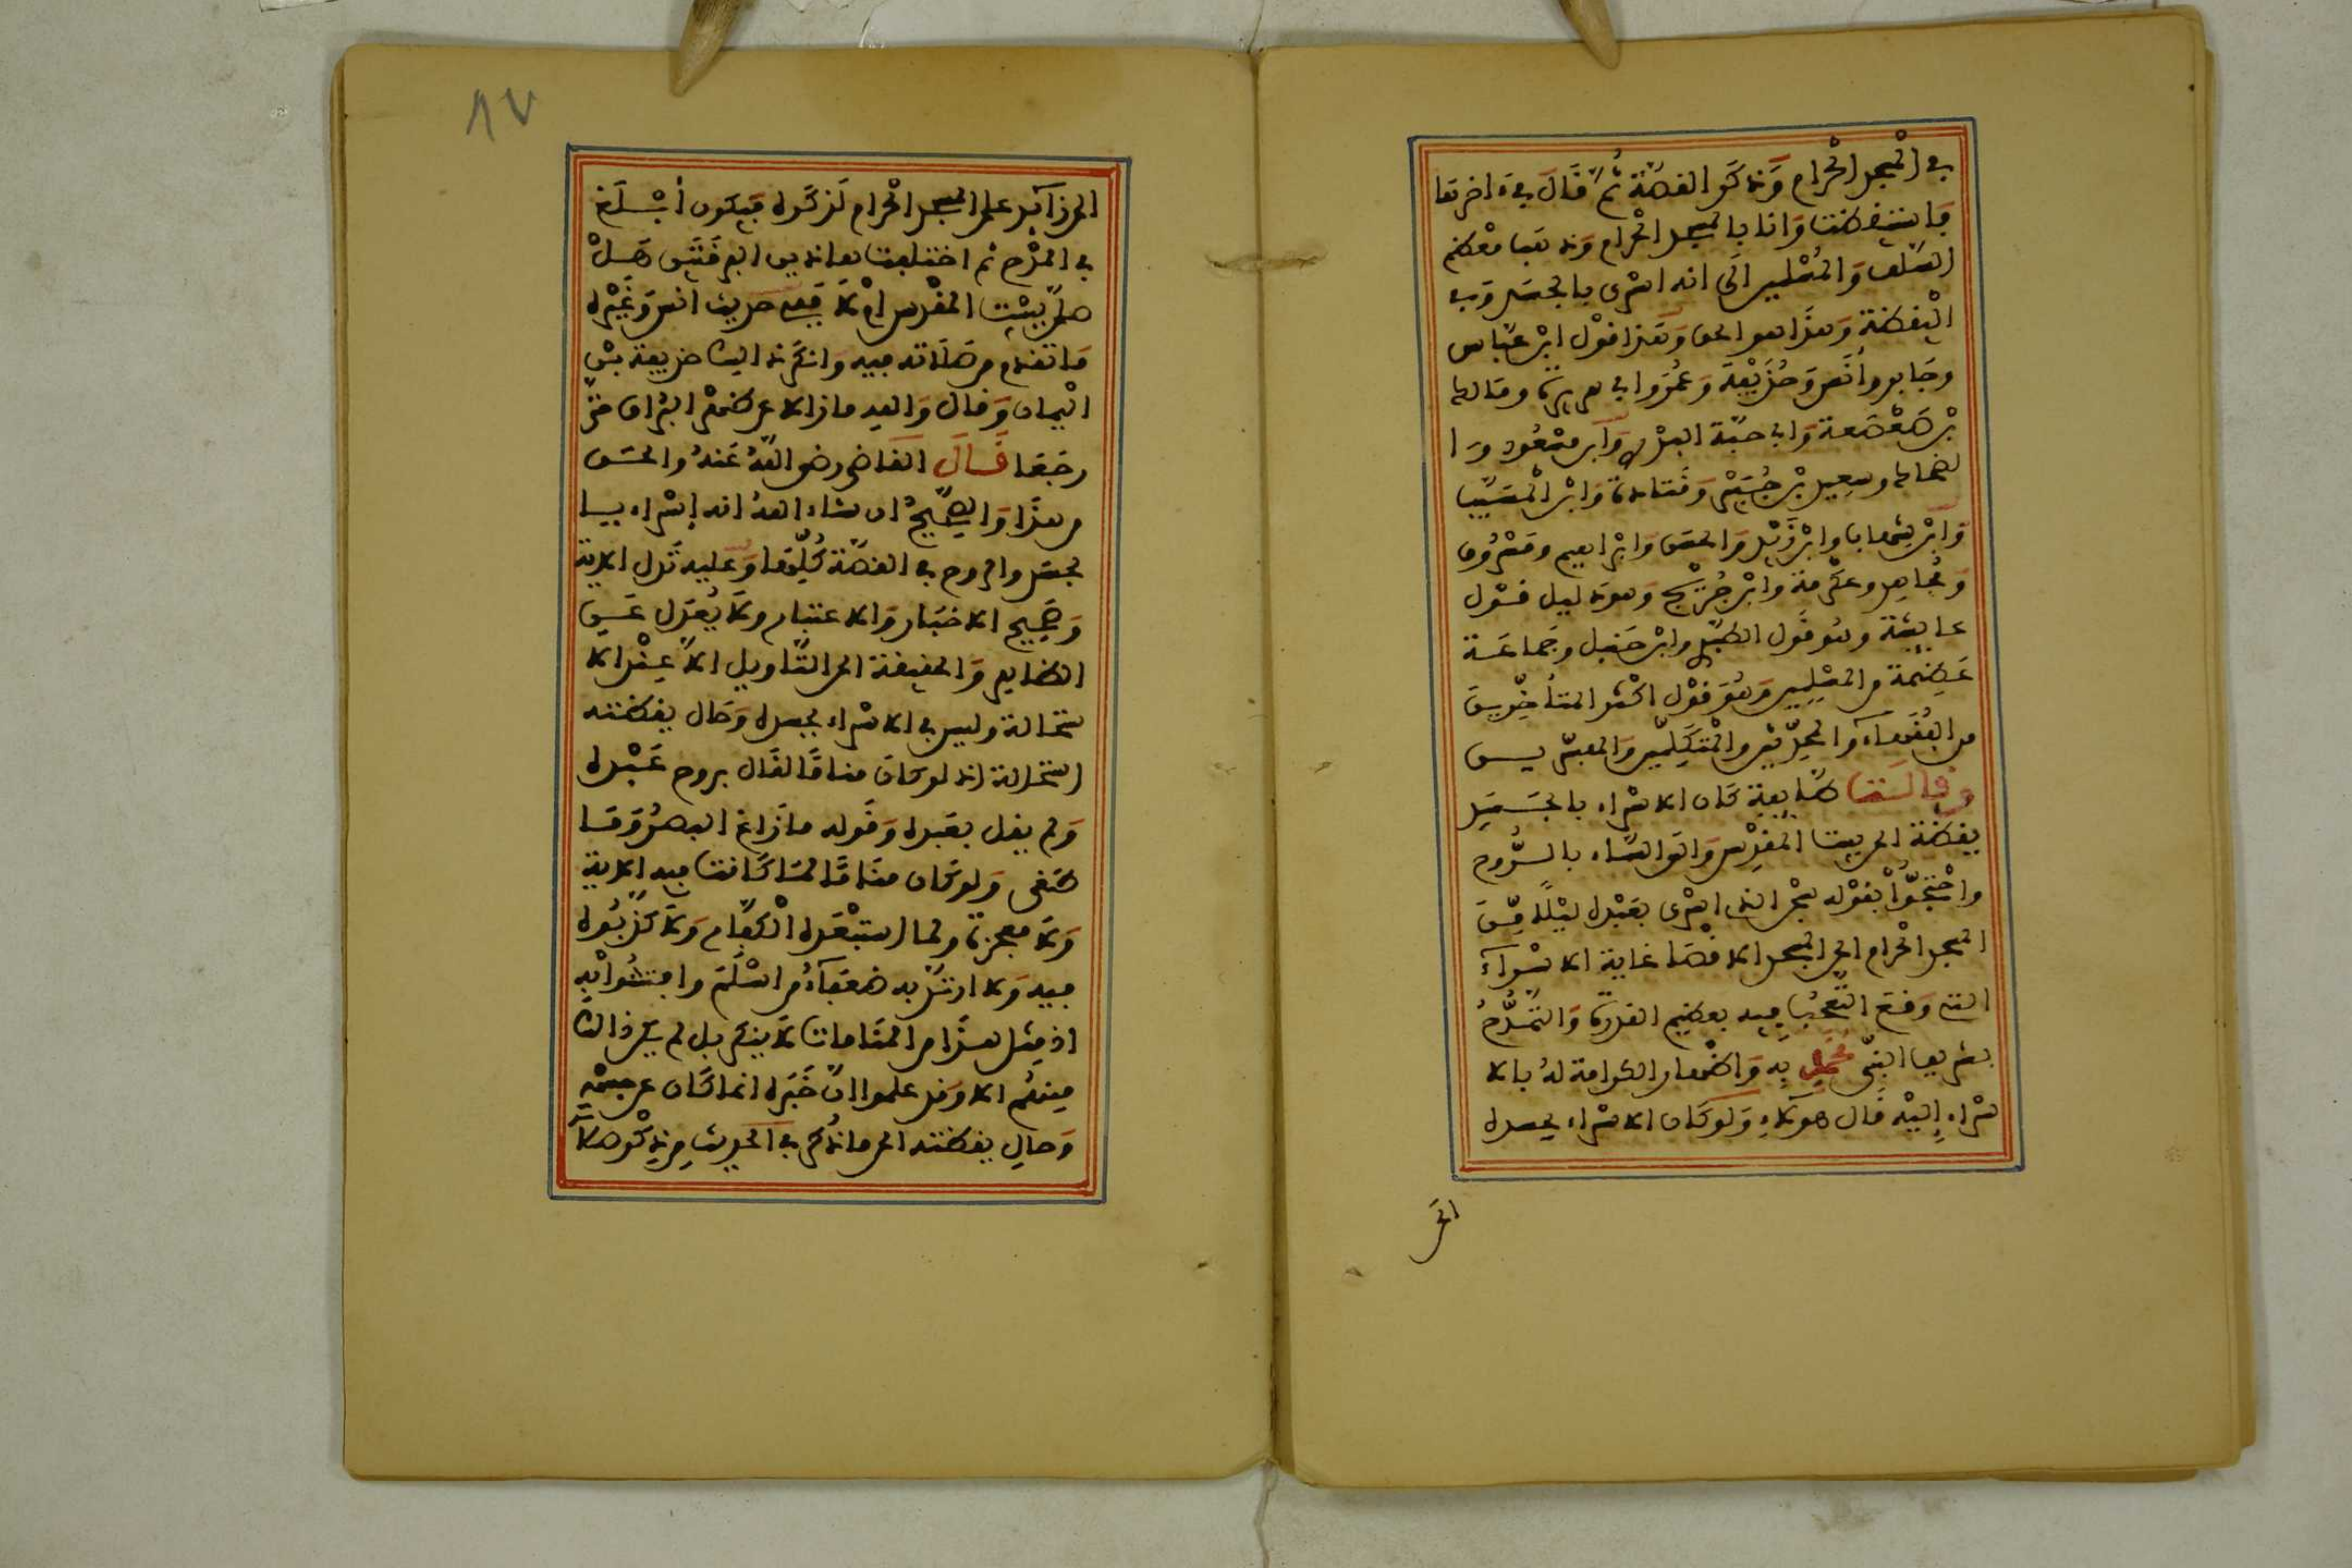 في المسجد الحرام وذكر القصة ثم قال في ءاخرها
فاستيقظت وانا بالمسجد الحرام وذهب معظم
السلف والمسلمين الى انه اسرى بالجسد وفي
اليقظة وهذا هو الحق وهذا قول ابن عباس
وجابر وأنس وحذيفة وعمر وابي هريرة ومالك
بن صعصعة وابي حبة البدري وابن مسعود وا
لضحاك وسعيد بن جبير وقتادة وابن المسيب
وابن شهاب وابن زيد والحسن وابراهيم ومسروق
ومجاهد وعكرمة وابن جريج وهو دليل قول
عايشة وهو قول الطبري وابن حنبل وجماعة
عظيمة من المسلمين وهو قول اكثر المتأخرين
من الفقهاء والمحدثين والمتكلمين والمفسرين
وقالت طايفة كان الاسراء بالجسد
يقظة الى بيت المقدس والى السماء بالروح
واحتجوا بقوله سبحن الذي اسرى بعبده ليلا من
المسجد الحرام الى المسجد الاقصا غاية الاسراء
الذي وقع التعجب فيه بعظيم القدرة والتمدح
بتشريف النبي محمد به واظهار الكرامة له بالا
سراء إليه قال هؤلاء ولو كان الاسراء بجسده
الى
الى زائد على المسجد الحرام لذكره فيكون أبلغ
في المدح ثم اختلفت هاذين الفرقتين هل
صلى ببيت المقدس ام لا ففي حديث انس وغيره
ما تقدم من صلاته فيه وانكر ذالك حذيفة بن
اليمان وقال والله ما زالا عن ظهر البراق حتى
رجعا قال القاضي رضي الله عنه والحق
من هذا والصحيح ان شاء الله انه إسراء با
لجسد والروح في القصة كلها وعليه تدل الاية
وصحيح الاخبار والاعتبار ولا يعدل عن
الظاهر والحقيقة الى التاويل الا عند الا
ستحالة وليس في الاسراء بجسده وحال يقظته
استحالة اذ لو كان مناما لقال بروح عبده
ولم يقل بعبده وقوله ما زاغ البصر وما
طغى ولو كان مناما لما كانت فيه اية
ولا معجزة ولما استبعده الكفار ولا كذبوه
فيه ولا ارتد به ضعفاء من اسلم وافتتنوا به
اذ مثل هذا من المنامات لا ينكر بل لم يكن ذالك
منهم الا وقد علموا ان خبره انما كان عن جسمه
وحال يقظته الى ما ذكر في الحديث من ذكر صلا
٨٧